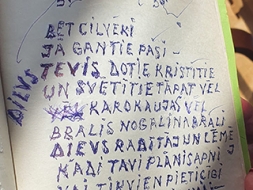 BET CILVĒKI
JA GAN TIE PAŠI -
DIEVS
TEVIS DOTIE KRISTĪTIE
UN SVĒTĪTIE TĀPAT VĒL
KAROKAUJAS VĒL
BRĀLIS NOGALINA BRĀLI
DIEVS RADĪTĀJ UN LĒMĒJ
KĀDI TAVI PLĀNI SAPŅI
VAI TIK VIEN PIETICĪGI